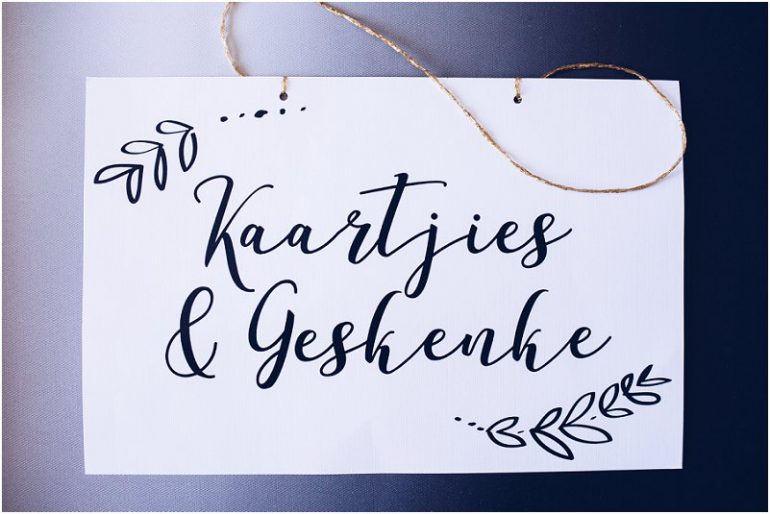 Kaartjies
& Geskenke